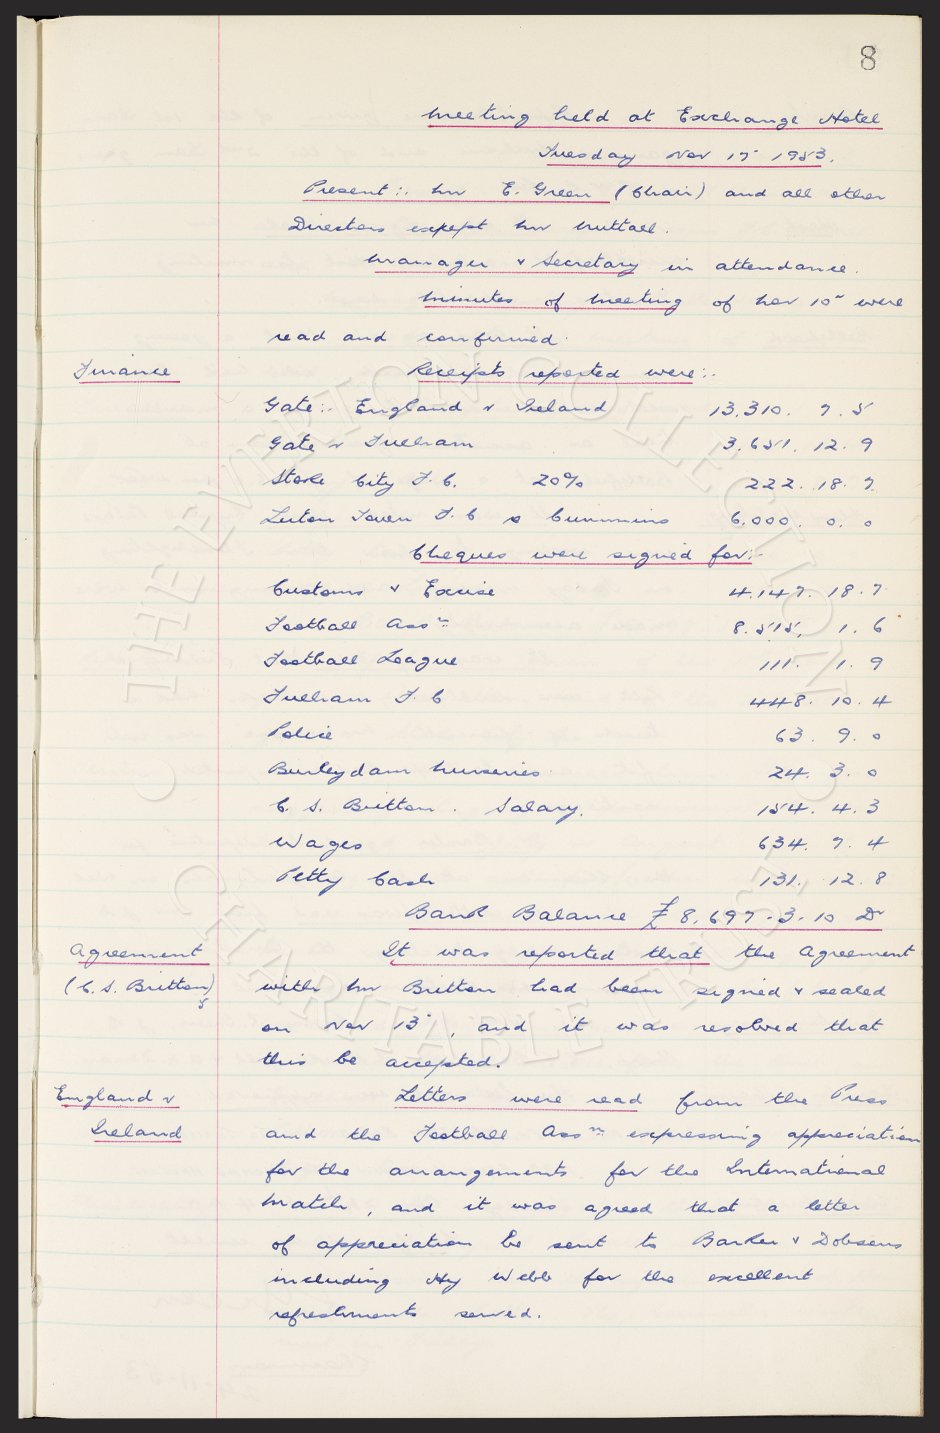 8
Meeting held at Exchange Hotel
Tuesday Nov 17" 1953.
Present:. Mr E. Green (Chair) and all other
Directors exfept Mr Nuttall.
Manager & Secretary in attendance.
Minutes of Meeting of Nov 10" were
read and confirmed.
Finance Receipts reported were:.
Gate:. England v Ireland 13,310. 7. 5
Gate v Fulham 3,651. 12. 9
Stoke City F.C. 20% 222. 18. 7.
Luton Town F.C Cummins 6,000. 0. 0
Cheques were signed for:-
Customs & Excise 4,147. 18. 7
Football Assn 8.515. 1. 6
Football League 111. 1. 9
Fulham F.C 448. 10. 4
Police 63. 9. 0
Burleydam Nurseries 24. 3. 0
C. S. Britton. Salary. 154. 4. 3
Wages 634. 7. 4
Petty Cash 131. 12. 8
Bank Balance £8,697-3-10 Dr
Agreement It was reported that the Agreement
(C. S. Britton) with Mr Britton had been signed & sealed
on Nov 13", and it was resolved that
this be accepted.
England v Letters were read from the Press
Ireland and the Football Assn expressing appreciation
for the arrangements for the International
Match, and it was agreed that a letter
of appreciation be sent to Barker & Dobsons
including Hy Webb for the excellent
refreshments served.
© THE EVERTON COLLECTION
CHARITABLE TRUST